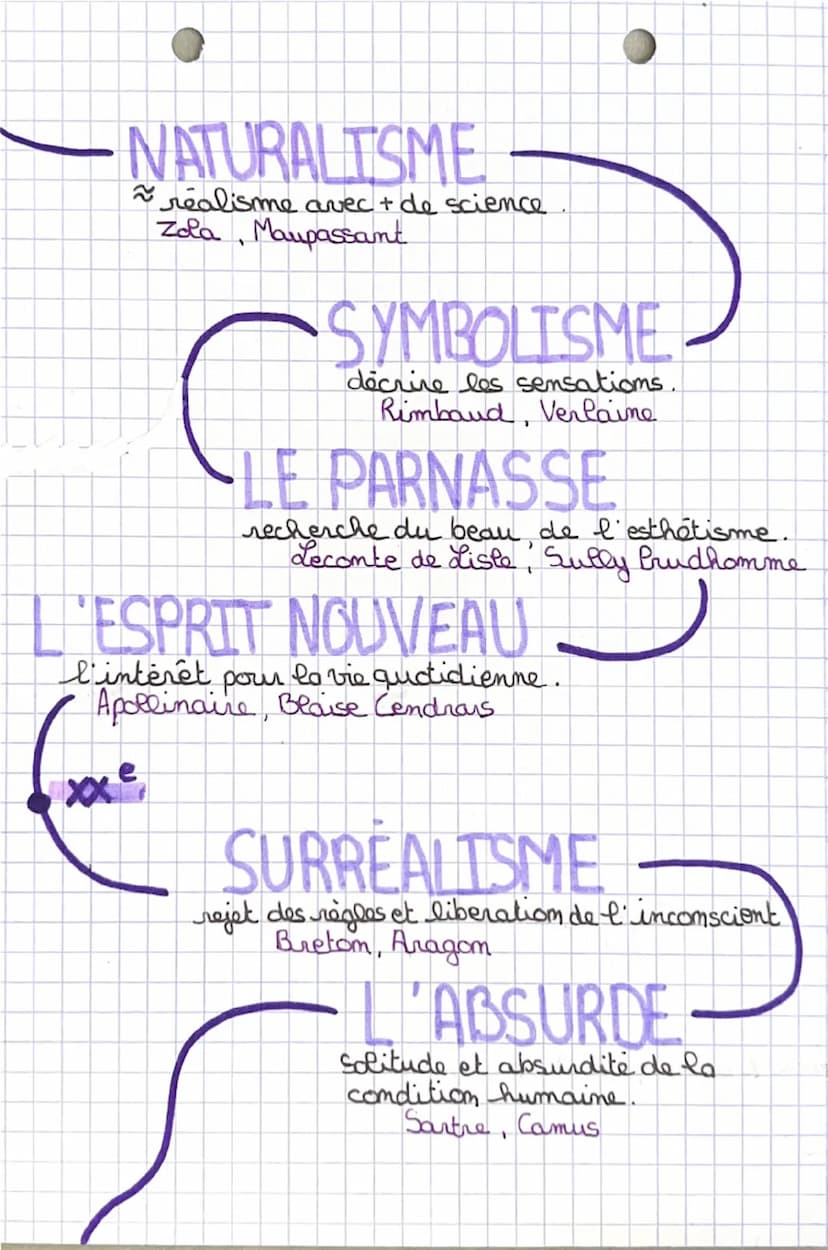 NATURALISME
≈ réalisme avec + de science.
Zola, Maupassant
SYMBOLISME
décrire les sensations.
Rimbaud, Verlaine
LE PARNASSE
recherche du beau, de l'esthétisme.
Leconte de Lisle, Sully Prudhomme
L'ESPRIT NOUVEAU
l'intérêt pour la vie quotidienne.
Apollinaire, Blaise Cendrars
XXe
SURRÉALISME
rejet des règles et libération de l'inconscient
Breton, Aragon
L'ABSURDE
solitude et absurdité de la
condition humaine.
Sartre, Camus